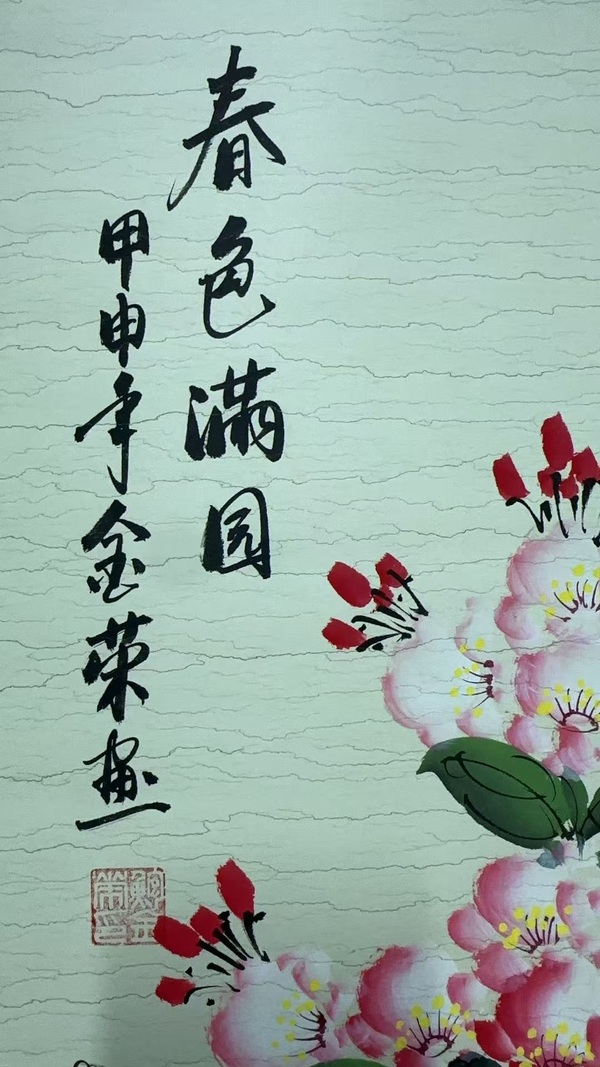 春色满园
甲申年金荣画